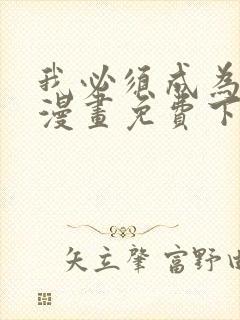 我必须成为
漫畫免費下
矢立肇 富野由